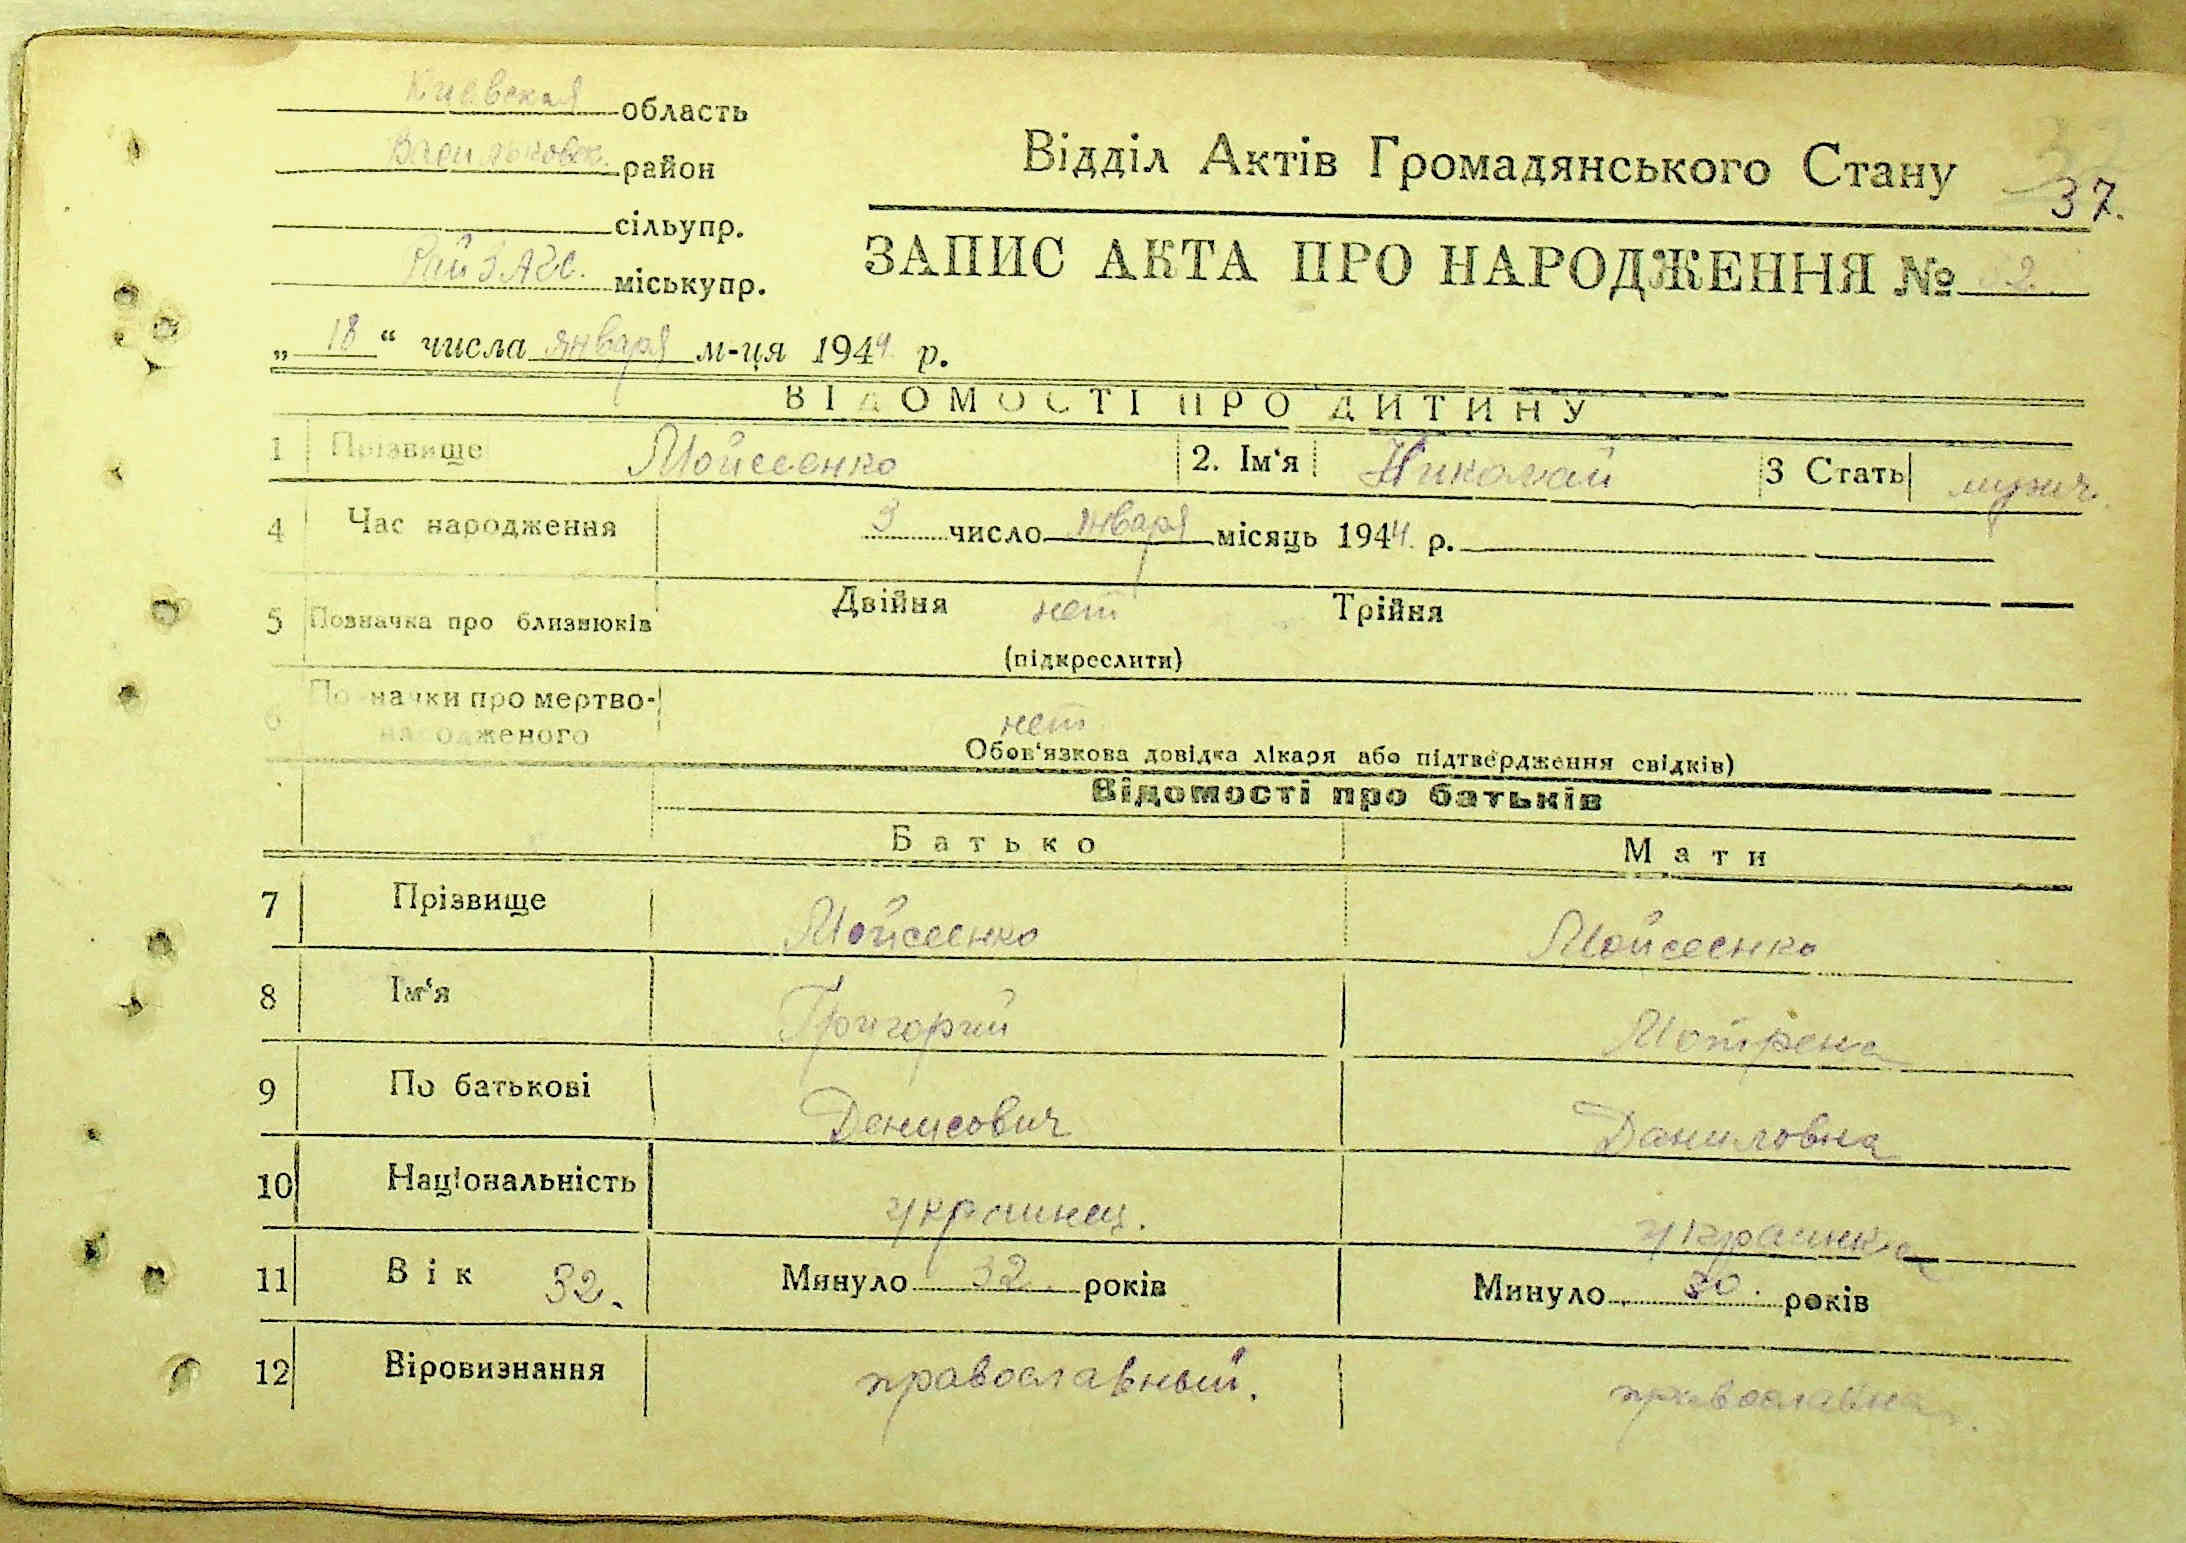 Киевская область
Васильковск. район
сільупр.
РайЗАГС. міськупр.
Відділ Актів Громадянського Стану
37.
ЗАПИС АКТА ПРО НАРОДЖЕННЯ №
„ 18 “ числа января м-ця 1944 р.
ВІДОМОСТІ ПРО ДИТИНУ
1 Прізвище Мойсеенко 2. Ім‘я Николай 3 Стать мужч.
4 Час народження 3 число января місяць 1944. р.
5 Позначка про близнюків Двійня нет Трійня
(підкреслити)
6 Позначки про мертво-
народженого нет
Обов‘язкова довідка лікаря або підтвердження свідків)
Відомості про батьків
Батько Мати
7 Прізвище Мойсеенко Мойсеенко
8 Ім‘я Григорий Мотрена
9 По батькові Денисович Даниловна
10 Національність украинец. украинка
11 Вік 32. Минуло 32. років Минуло 30. років
12 Віровизнання православный. православна.